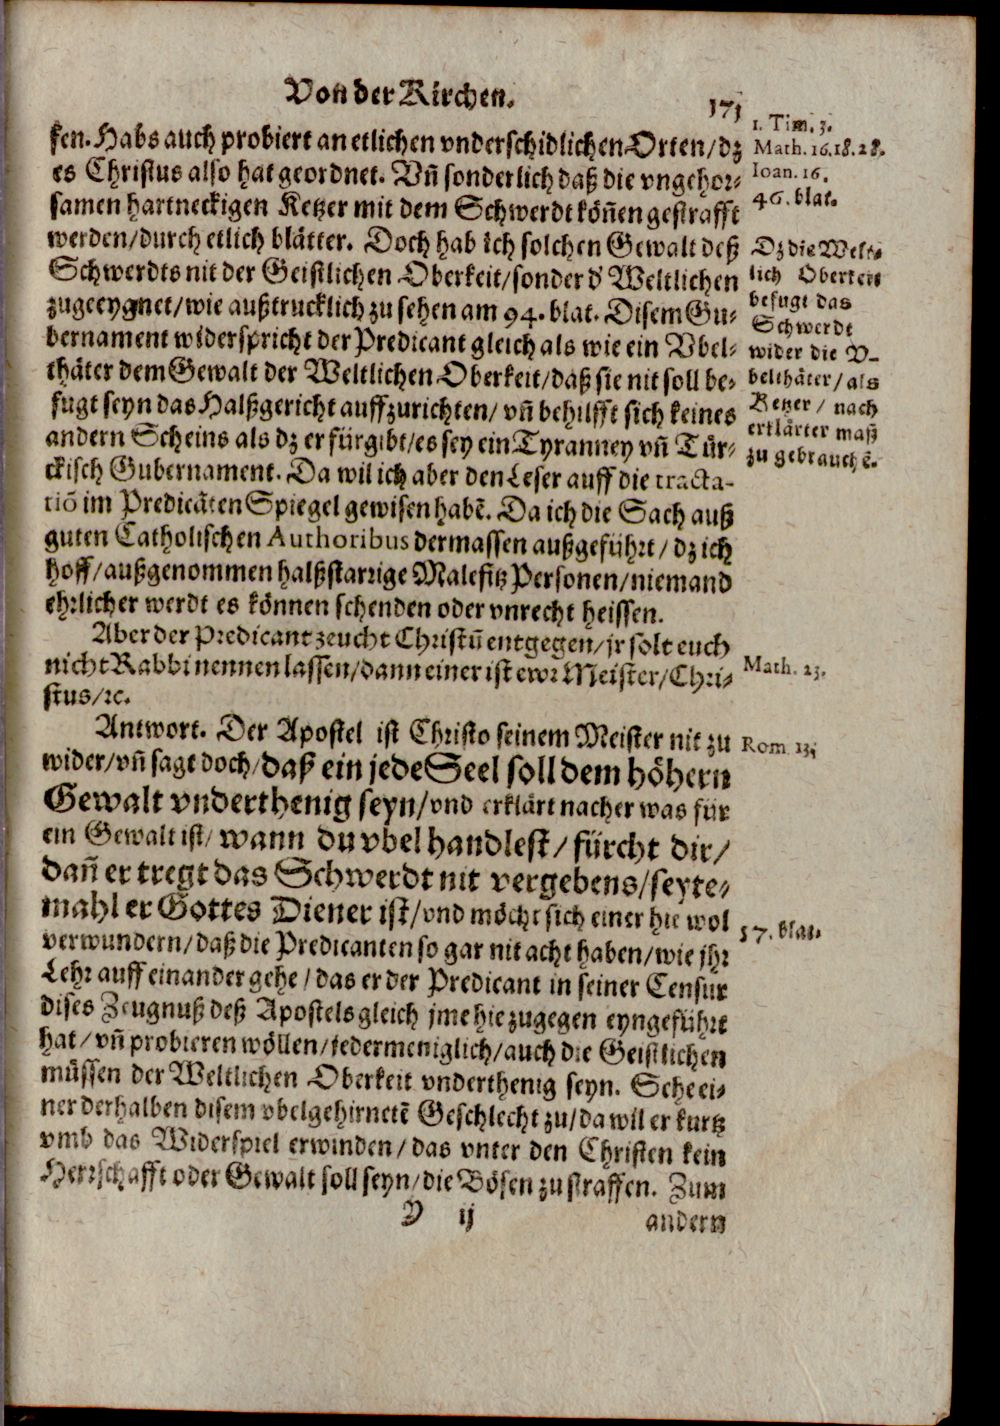 Von der Kirchen.
171
sen. Habs auch probiert an etlichen vnderschidlichen Orten/dz
es Christus also hat geordnet. Vñ sonderlich daß die vngehor-
samen hartneckigen Ketzer mit dem Schwerdt köñen gestrafft
werden/durch etlich blätter. Doch hab ich solchen Gewalt deß
Schwerdts nit der Geistlichen Oberkeit/sonder d' Weltlichen
zugeeygnet/wie außtrucklich zu sehen am 94. blat. Disem Gu-
bernament widerspricht der Predicant gleich als wie ein Vbel-
thäter dem Gewalt der Weltlichen Oberkeit/daß sie nit soll be-
fugt seyn das Halßgericht auffzurichten/ vñ behilfft sich keines
andern Scheins als dz er fürgibt/es sey ein Tyranney vñ Tür-
ckisch Gubernament. Da wil ich aber den Leser auff die tracta-
tiõ im Predicãten Spiegel gewisen habẽ. Da ich die Sach auß
guten Catholischen Authoribus dermassen außgeführt/ dz ich
hoff/außgenommen halßstarrige Malefitz Personen/niemand
ehrlicher werdt es können schenden oder vnrecht heissen.
Aber der Predicant zeucht Christũ entgegen/jr solt euch
nicht Rabbi nennen lassen/dann einer ist ewr Meister/Chri-
stus/ꝛc.
Antwort. Der Apostel ist Christo seinem Meister nit zu
wider/vñ sagt doch/daß ein jede Seel soll dem höhern
Gewalt vnderthenig seyn/vnd erklärt nacher was für
ein Gewalt ist/ wann du vbel handlest/ fürcht dir/
dañ er tregt das Schwerdt nit vergebens/seyte-
mahl er Gottes Diener ist/vnd möcht sich einer hie wol
verwundern/daß die Predicanten so gar nit acht haben/wie jhr
Lehr auff einander gehe/ das er der Predicant in seiner Censur
dises Zeugnuß deß Apostels gleich jme hie zugegen eyngeführt
hat/ vñ probieren wöllen/jedermeniglich/auch die Geistlichen
müssen der Weltlichen Oberkeit vnderthenig seyn. Sche ei-
ner derhalben disem vbelgehirnetẽ Geschlecht zu/da wil er kurtz
vmb das Widerspiel erwinden/ das vnter den Christen kein
Herrschafft oder Gewalt soll seyn/die Bösen zu straffen. Zum
Y ij
andern
1. Tim. 3.
Math. 16.18.28.
Ioan. 16.
46. blat.
Dz die Welt-
lich Oberkeit
befugt das
Schwerdt
wider die V-
belthäter/als
Ketzer/ nach
erklärter maß
zu gebrauchẽ.
Math. 23.
Rom 13.
57. blat.